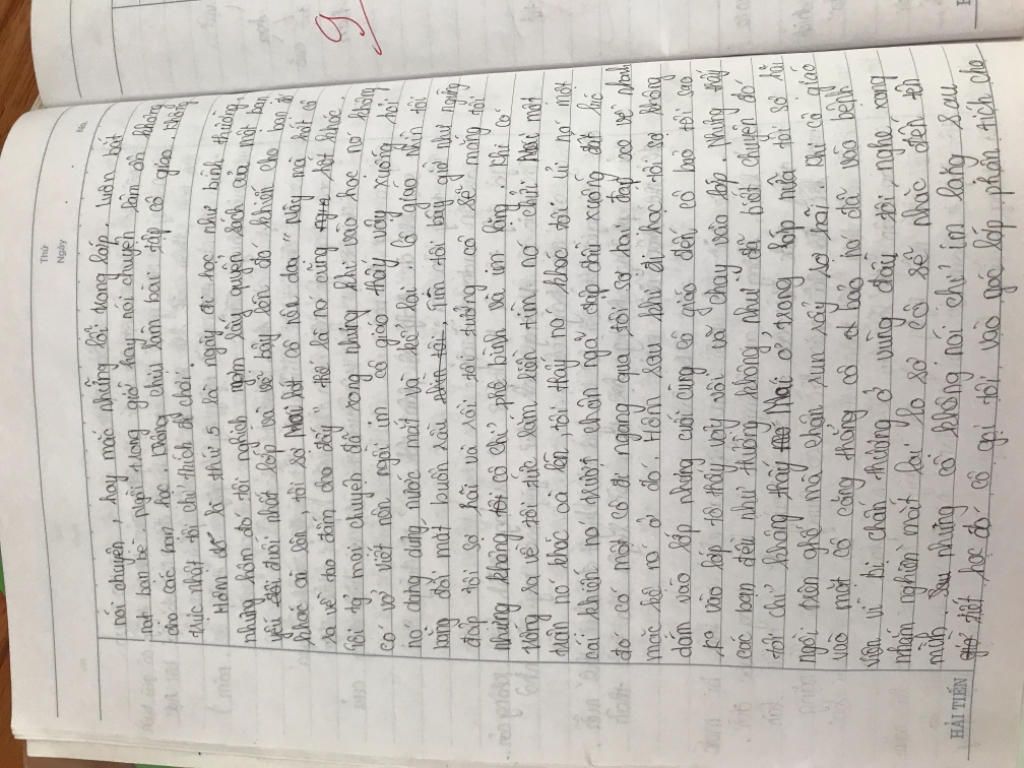 Thứ
Ngày
No.
9
nói chuyện, hay mắc những lỗi trong lớp, luôn bắt
nạt bạn bè ngồi trong giờ hay nói chuyện làm ồn không
cho các bạn học, không chịu làm bài tập cô giao thống
thực nhất tôi chỉ thích đi chơi.
Hôm là thứ 5 là ngày đi học như bình thường
nhưng hôm đó tôi nghịch ngợm lấy quyển sách của một bạn
yếu đuối nhất lớp và vẽ bậy lên đó khiến cho bạn ấy
khóc ầm lên, tôi sợ Mai lót cô nên doạ "Này mà hớt cô
ra về tao đấm cho đấy" thế là nó cũng lót khóc.
Tôi tự mọi chuyện đã xong nhưng khi vào học nó không
có vở viết nên ngồi im cô giáo thấy vậy xuống hỏi
nó dưng dưng nước mắt và kể lại. Cô giáo nhìn tôi
bằng đôi mắt buồn sầu, tim tôi bây giờ như ngừng
đập tôi sợ hãi và rồi tôi tưởng cô sẽ mắng tôi
nhưng không cô chỉ phê bình và im lặng. Khi cô
vống ra về tôi tức lắm liền tìm nó chửi Mai một
trận nó khóc cả lên, tôi thấy nó khóc tôi ủi nó một
cái khiến nó trượt chân ngã cặp dài xuống đất lúc
đó có một cô đi ngang qua tôi sợ tái đạp xe về nhà
mặc kệ nó ở đó. Hôm sau khi đi học tôi sợ không
dám vào lớp nhưng cuối cùng cô giáo đến cô bảo tôi sao
ko vào lớp tôi thấy vậy vội vã chạy vào lớp. Nhưng thấy
các bạn đều như thường không như đã biết chuyện đó
tôi chỉ không thấy Mai ở trong lớp nữa tôi sợ hãi
ngồi trên ghế mà chân run rẩy sợ hãi. Khi cô giáo
vào mặt cô căng thẳng cô bảo nó đã vào bệnh
viện vì bị chấn thương ở vùng đầu tôi nghe xong
nhắm nghiền mắt lại lo sợ cô sẽ nhắc đến tên
mình. Sau nhưng cô không nói chỉ im lặng sau
tiết học đó cô gọi tôi vào góc lớp phân tích cho
HẢI TIẾN